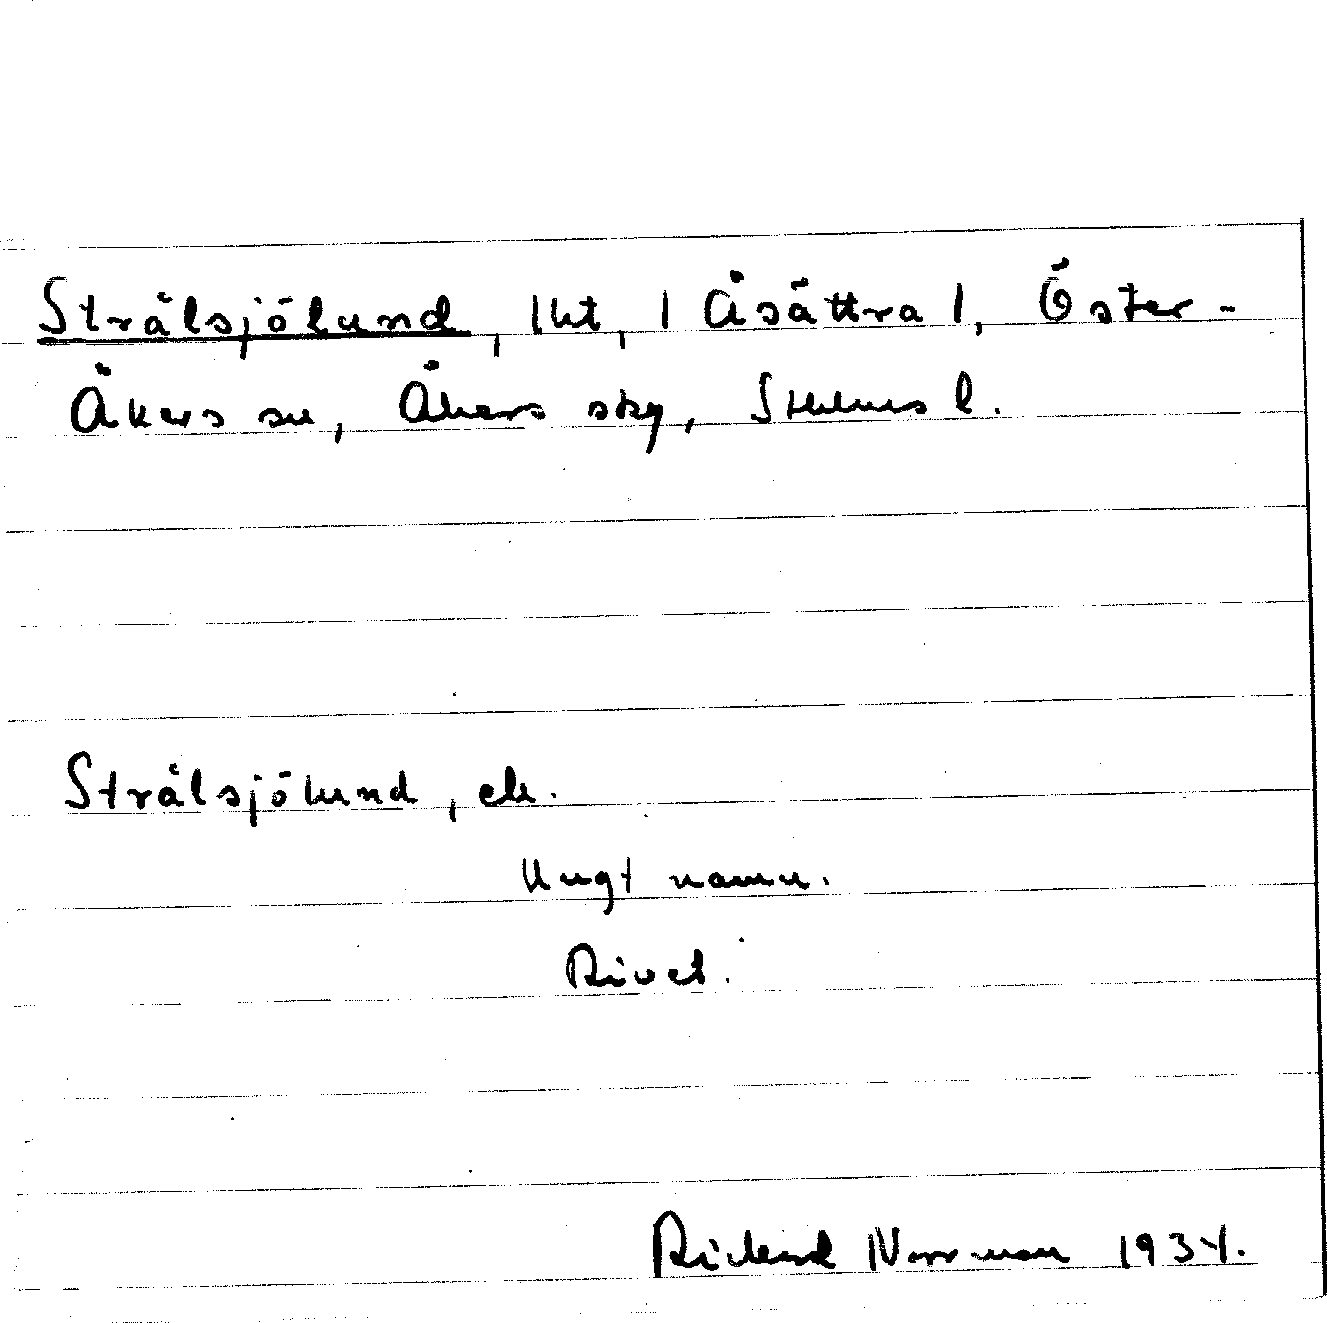 Strålsjölund, lht, | Åsättra |, Öster-
Åkers sn, Åkers skg, Sthlms l.
Strålsjölund, ek.
Ungt namn.
Rivet.
Rickard Norrman 1934.